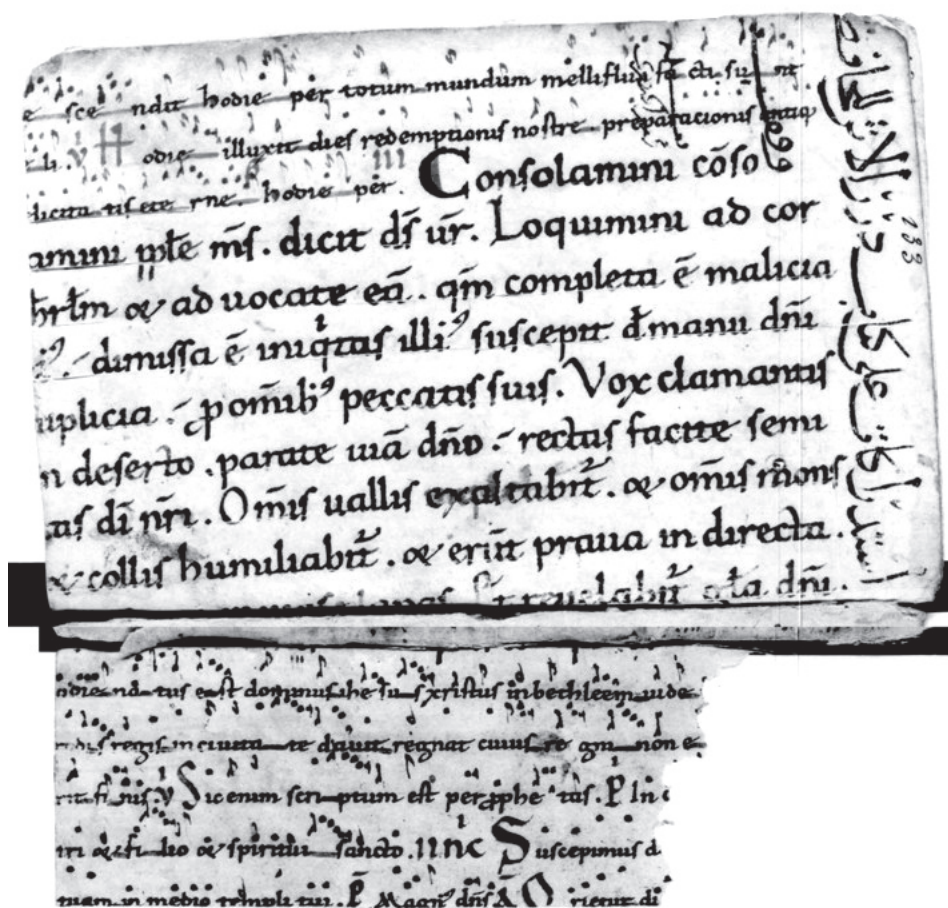 e sce ndit hodie per totum mundum melliflui facti sunt
li. V Hodie illuxit dies redemptionis nostre preparacionis antiq
licita tis ete rne hodie per. Consolamini cōso
amini pple ms. dicit ds ur. Loquimini ad cor
hrlm & ad uocate eā. qm completa ē malicia
dimissa ē iniqitas illi⁹ suscepit d manu dni
uplicia. p omib⁹ peccatis suis. Vox clamantis
n deserto. parate uiā dno. rectas facite semi
tas di nri. Omis uallis exaltabit. & omis mons
& collis humiliabit. & erūt praua in directa.
reuelabit gla dni.
odie na tus est dominus ihe su s xristus in bethleem uide
regis in ciuita te dauit regnat cuius re gni non e
rit fi nis. V Sic enim scriptum est per pphe tas. P In
tri & fi lio & spiritui sancto. IINC Suscepimus d
tuam in medio templi tui. P Magn dns A Orietur di
133